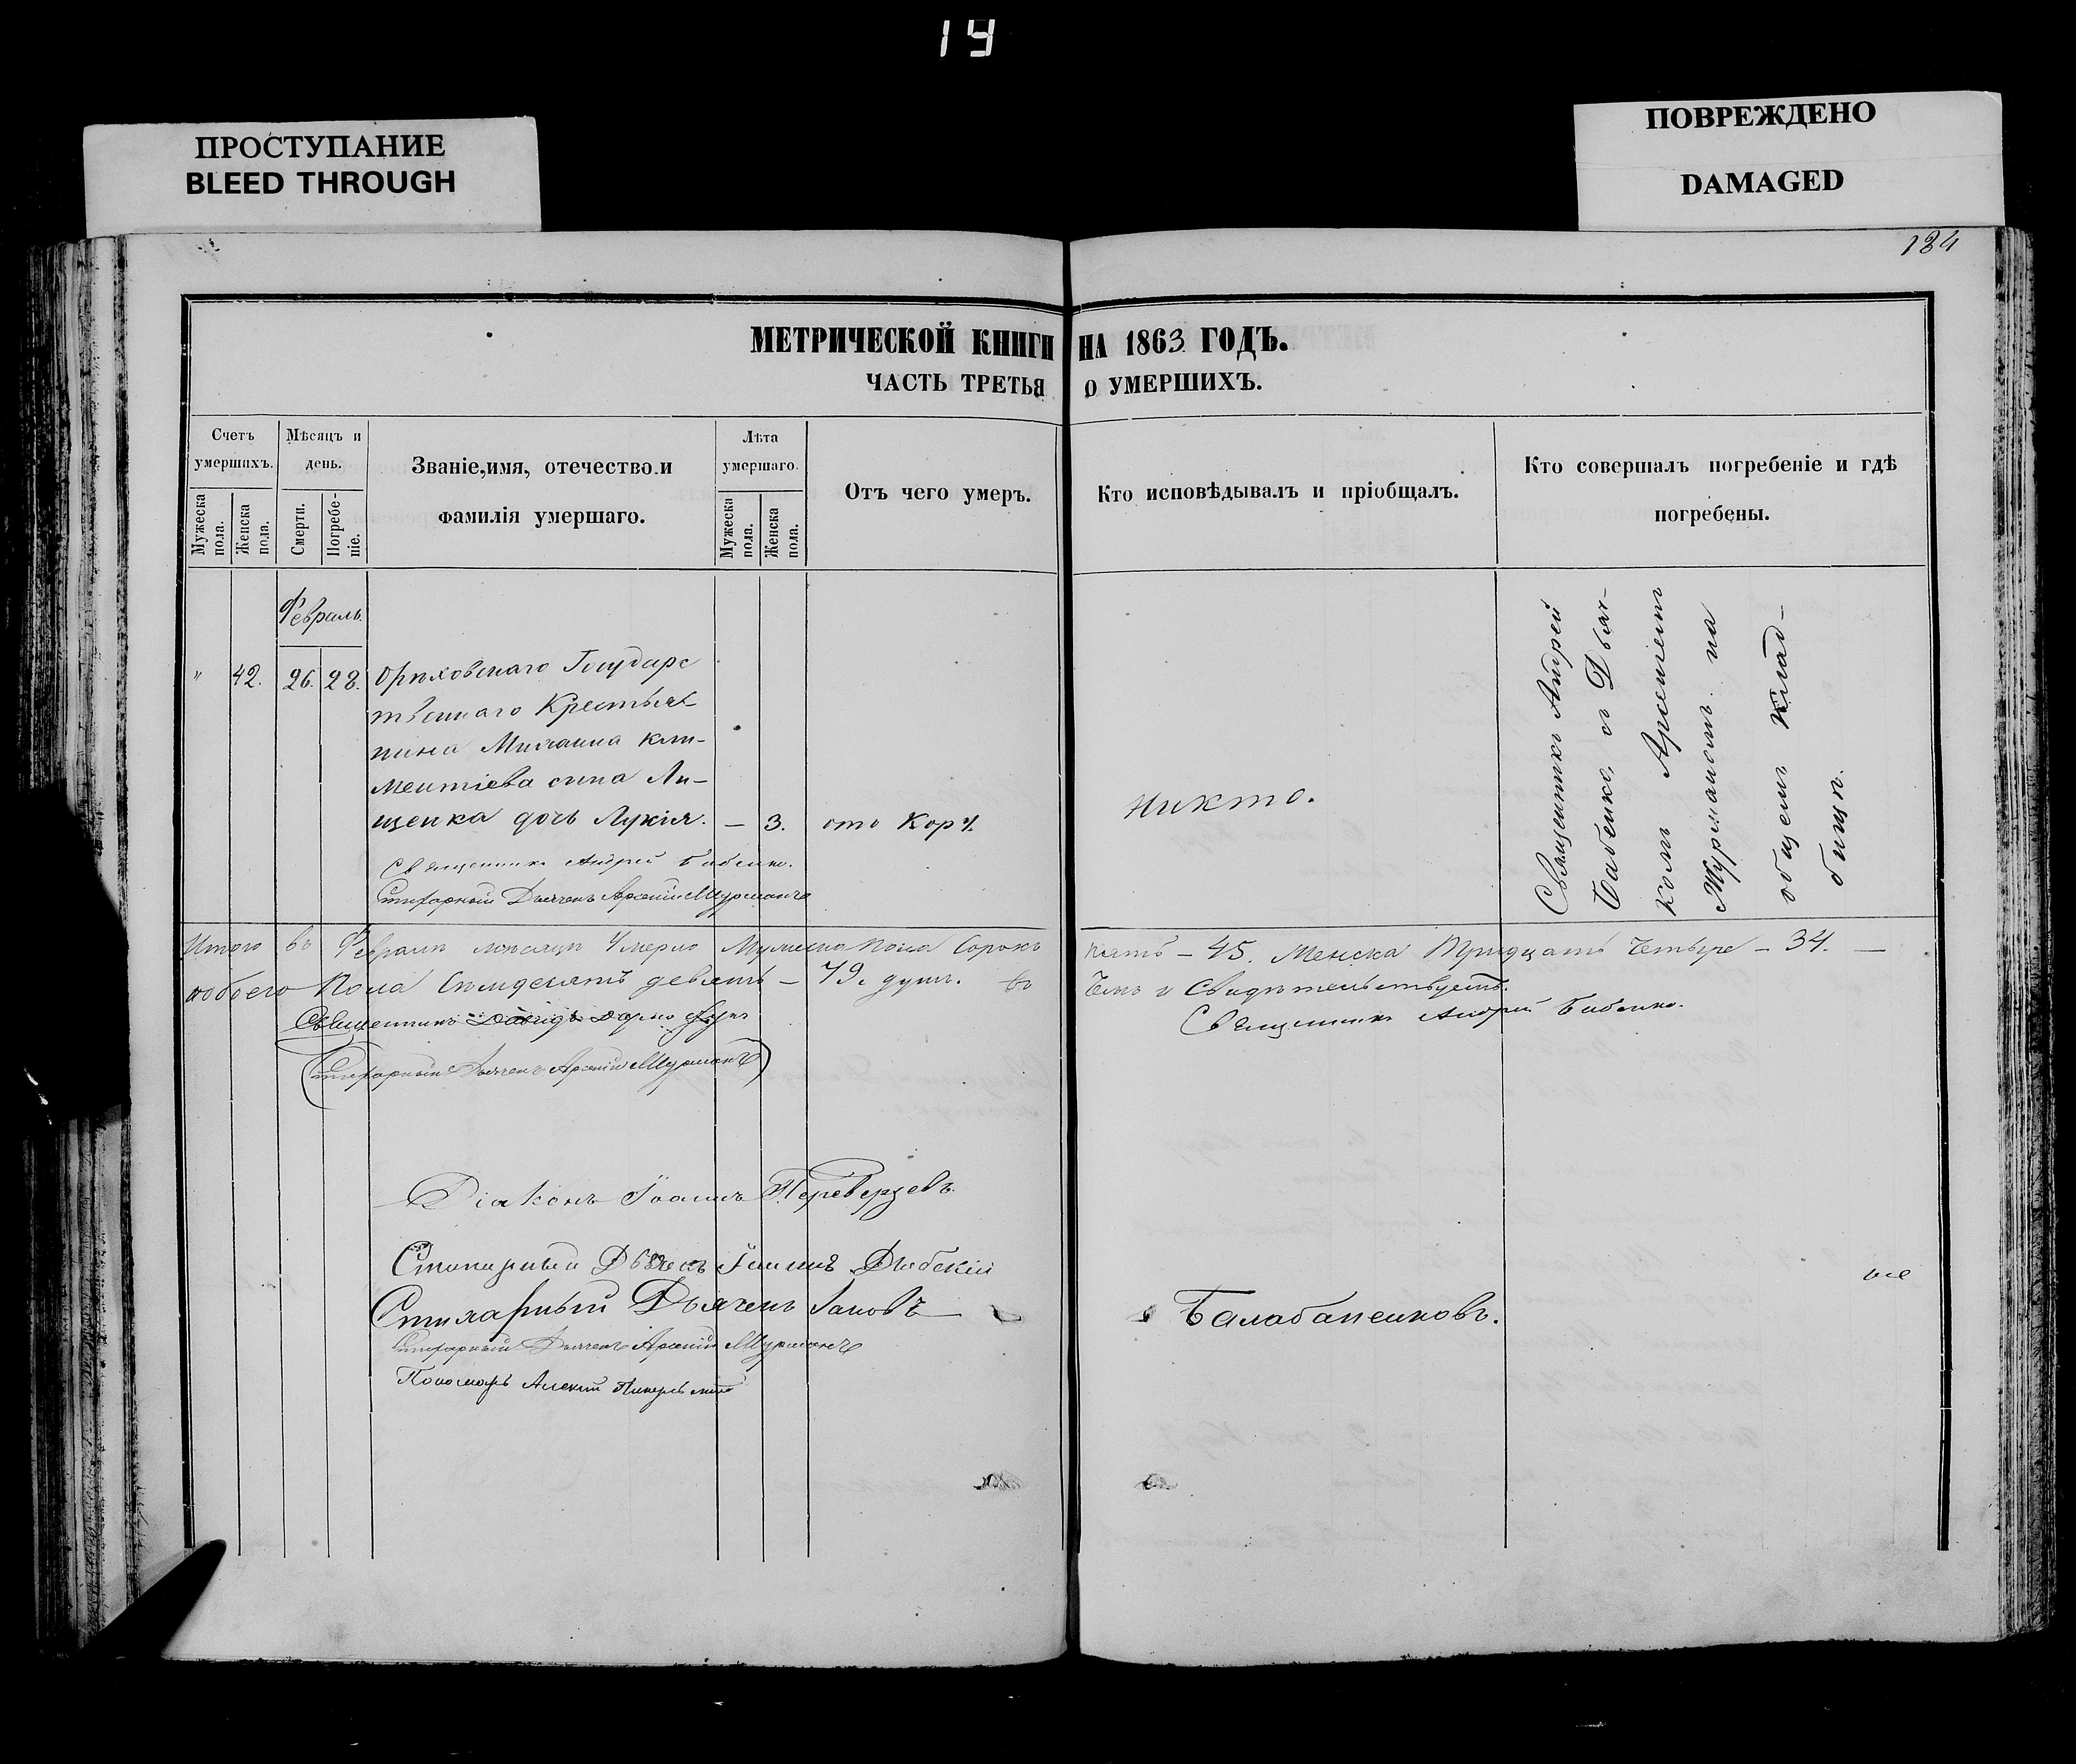 14
ПРОСТУПАНИЕ
BLEED THROUGH
ПОВРЕЖДЕНО
DAMAGED
134
МЕТРИЧЕСКОЙ КНИГИ НА 1863 ГОДЪ.
ЧАСТЬ ТРЕТЬЯ О УМЕРШИХЪ.
Счетъ умершихъ.
Мужеска пола.
Женска пола.
Мѣсяцъ и день.
Смерти.
Погребе-
ніе.
Званіе, имя, отечество и
фамилія умершаго.
Лѣта умершаго.
Мужеска пола.
Женска пола.
Отъ чего умеръ.
Кто исповѣдывалъ и пріобщалъ.
Кто совершалъ погребеніе и гдѣ
погребены.
Февраль.
" 42. 26. 28.
Орѣховскаго Государс
твеннаго Крестья
нина Михаила Кли-
ментіева сына Ли-
щенка дочь Лукія. — 3. отъ Кору.
никто.
Священникъ Андрей
Бабенко, съ Дьяч-
комъ Арсеніемъ
Мурманомъ на
общемъ клад-
бищѣ.
Священникъ Андрей Бабенко.
Стихарный Дьячекъ Арсеній Мурманъ
Итого въ Февралѣ мѣсяцѣ умерло Мужеска пола Сорокъ пять — 45. Женска Тридцать Четыре — 34. —
обоего Пола Семдесятъ девять — 79. душъ. въ Чемъ и Свидѣтельствуетъ.
Священникъ Давидъ
Священникъ Андрей Бабенко.
Стихарный Дьячекъ Арсеній Мурманъ
Діаконъ Іоаннъ Переверзевъ.
Стихарный Дьячекъ Іоаннъ
Стихарный Дьячекъ Іаковъ — Балабаненковъ.
Стихарный Дьячекъ Арсеній Мурманъ
Пономарь Алексій